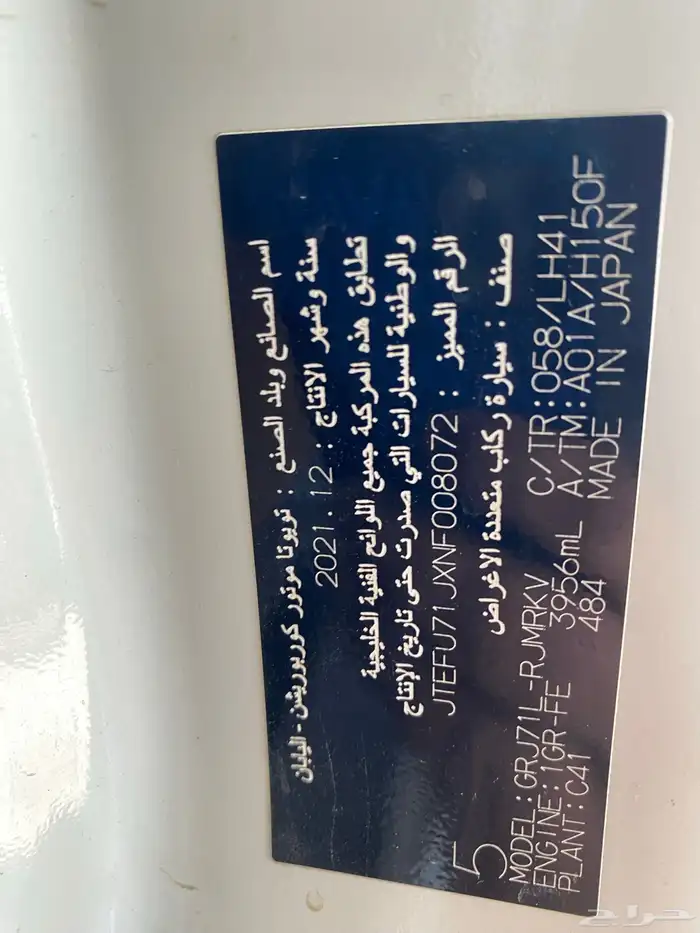 اسم الصانع وبلد الصنع : تويوتا موتور كوربوريشن - اليابان
سنة وشهر الانتاج : 2021.12
تطابق هذه المركبة جميع اللوائح الفنية الخليجية
والوطنية للسيارات التي صدرت حتى تاريخ الإنتاج
الرقم المميز : JTEFU71JXNF008072
صنف : سيارة ركاب متعددة الاغراض
5
MODEL:GRJ71L-RJMRKV C/TR:058/LH41
ENGINE:1GR-FE 3956mL A/TM:A01A/H150F
PLANT:C41 484 MADE IN JAPAN
حراج